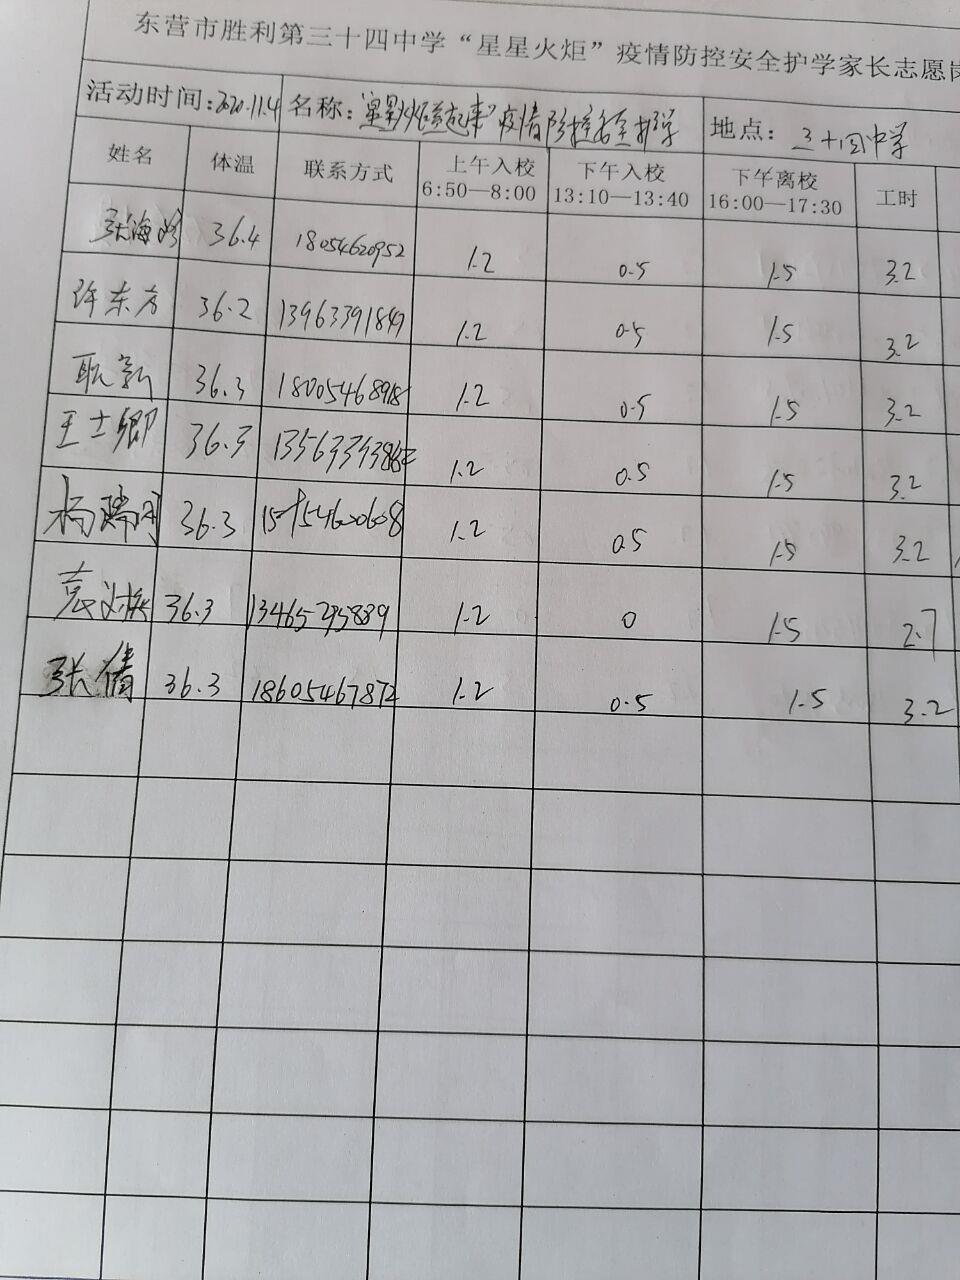 东营市胜利第三十四中学“星星火炬”疫情防控安全护学家长志愿岗
活动时间:2020.11.4 名称:“星星火炬 起来”疫情防控安全护学 地点:三十四中学
姓名 体温 联系方式 上午入校 下午入校 下午离校 工时
6:50—8:00 13:10—13:40 16:00—17:30
张海 36.4 18054620952 1.2 0.5 1.5 3.2
许东方 36.2 13963391849 1.2 0.5 1.5 3.2
耿新 36.3 18005468918 1.2 0.5 1.5 3.2
王士卿 36.3 1.2 0.5 1.5 3.2
杨瑞 36.3 1.2 0.5 1.5 3.2
袁 36.3 13465295889 1.2 0 1.5 2.7
张倩 36.3 18605467872 1.2 0.5 1.5 3.2